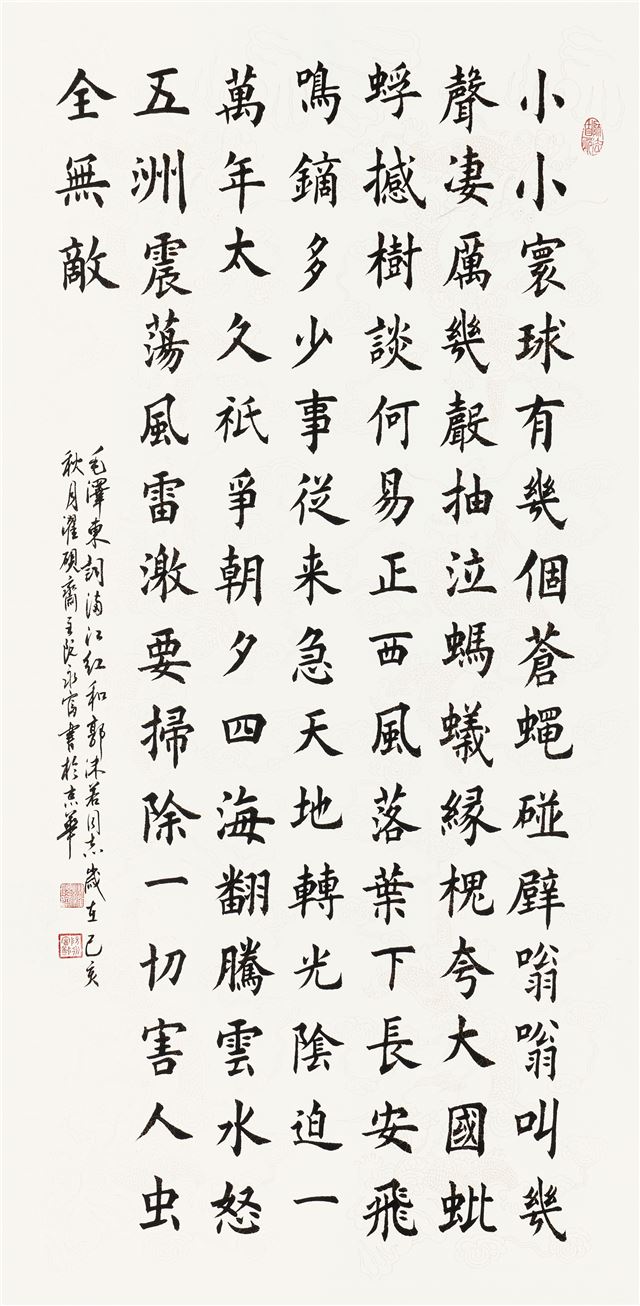 小小寰球有幾個蒼蠅碰壁嗡嗡叫幾
聲凄厲幾聲抽泣螞蟻緣槐夸大國蚍
蜉撼樹談何易正西風落葉下長安飛
鳴鏑多少事從来急天地轉光陰迫一
萬年太久祇爭朝夕四海翻騰雲水怒
五洲震蕩風雷激要掃除一切害人虫
全無敵
毛澤東詞滿江紅和郭沫若同志歲在己亥
秋月濯硯齋主阮永富書於京華